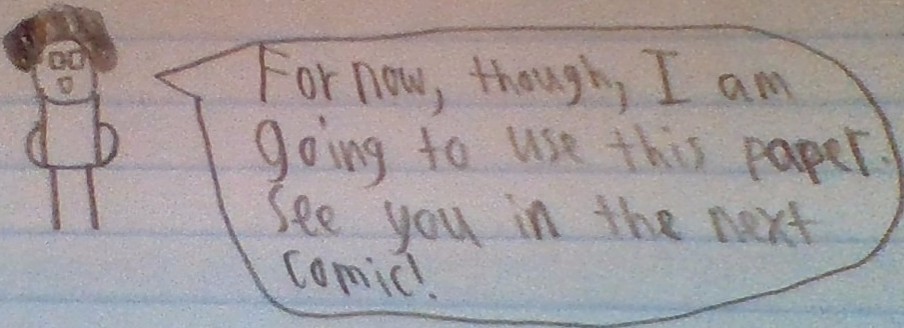 For now, though, I am
going to use this paper.
See you in the next
comic!